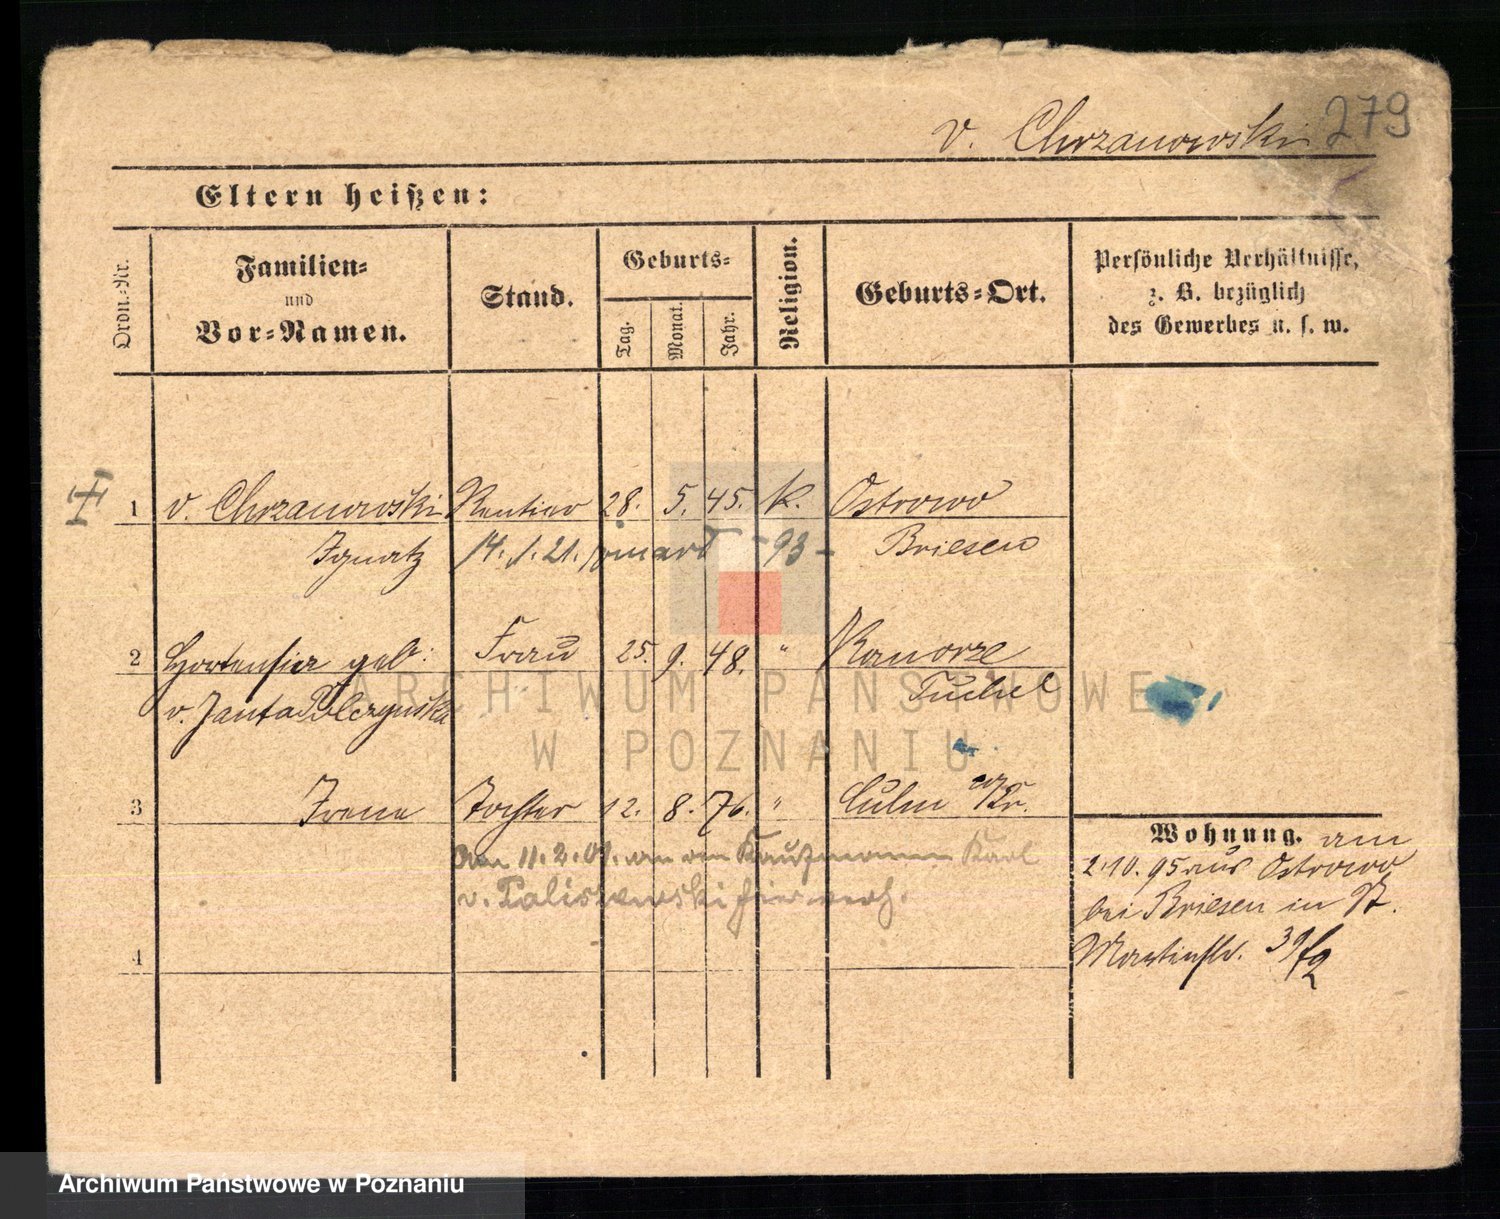 v. Chrzanowski 279
Eltern heißen:
Ordn.-Nr.
Familien-
und
Vor-Namen.
Stand.
Geburts-
Tag. Monat. Jahr.
Religion.
Geburts-Ort.
Persönliche Verhältnisse,
z. B. bezüglich
des Gewerbes u. s. w.
1 v. Chrzanowski Rentier 28. 5. 45. k. Ostrowo
Ignatz 14. 1. 21. - 93 - Briesen
2 Hortensia geb: Frau 25. 9. 48. " 
v. Janta Polczynska Tuchel
3 Irene Tochter 12. 8. 76. " Culm
Am 11. 2. 01. an den Kaufmann Karl
v. Paliszewski hier verh.
4
Wohnung. am
2.10.95 aus Ostrowo
bei Briesen in St.
Martinstr.
ARCHIWUM PAŃSTWOWE
W POZNANIU
Archiwum Państwowe w Poznaniu